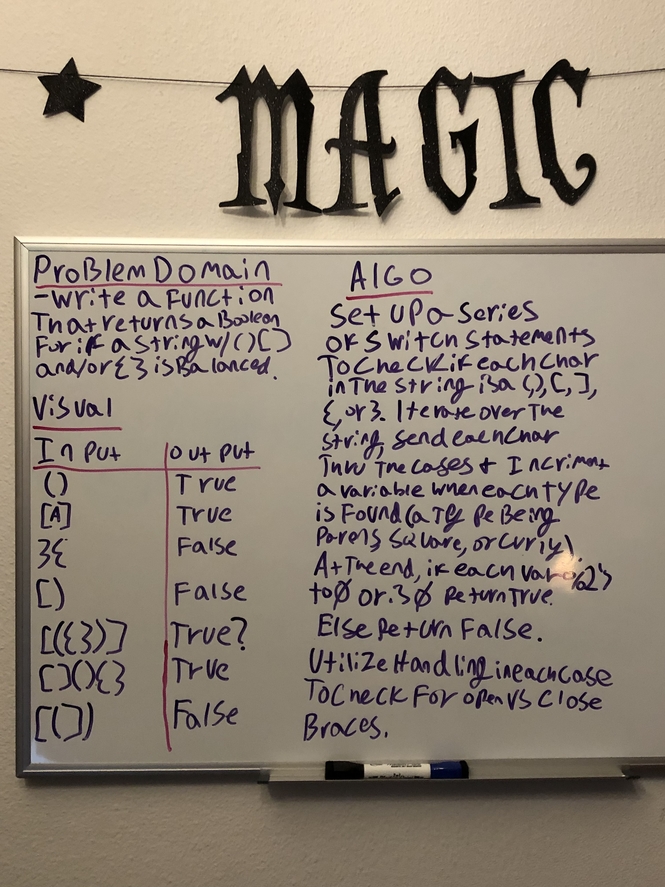 MAGIC
Problem Domain
-write a function
That returns a Boolean
For if a string w/ () []
and/or {} is Balanced.
Visual
Input output
() True
[A] True
}{ False
[) False
[({})] True?
[](){} True
[(]) False
AlGO
Set up a series
of switch statements
To check if each char
in The string is a (,), [, ],
{, or }. Iterate over The
string, send each char
Thru The cases + Incriment
a variable when each type
is Found (a Type Being
Parens, Square, or curly).
At The end, if each var %2's
to 0 or.3 0 Return True.
Else Return False.
Utilize Handling in each case
To check For open vs close
Braces.